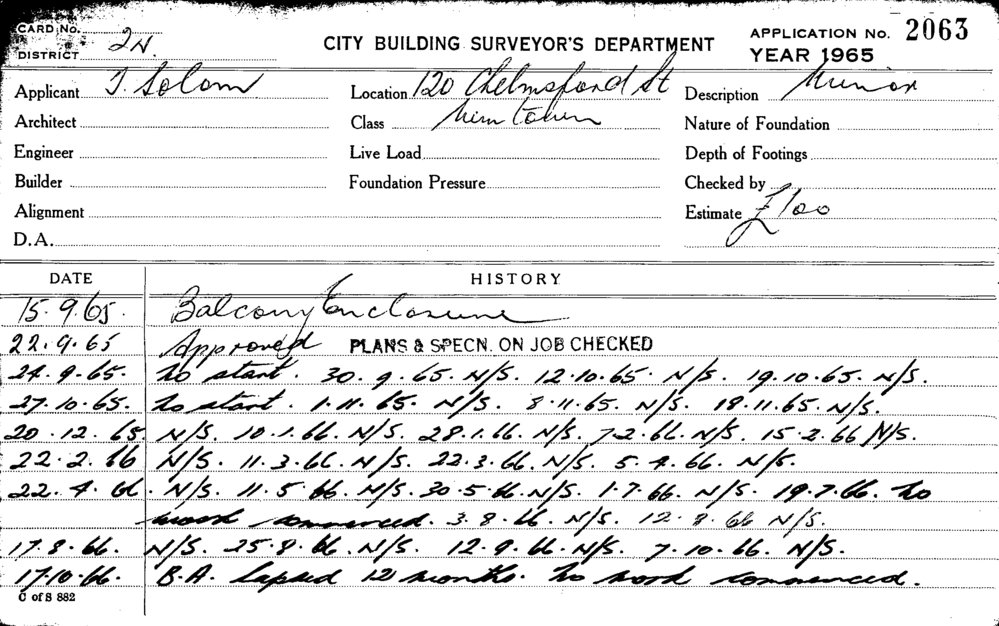 CARD No.
DISTRICT 2N.
CITY BUILDING SURVEYOR'S DEPARTMENT
APPLICATION No. 2063
YEAR 1965
Applicant J. Solom Location 120 Chelmsford St Description Minor
Architect Class Nature of Foundation
Engineer Live Load Depth of Footings
Builder Foundation Pressure Checked by
Alignment Estimate £100
D.A.
DATE HISTORY
15.9.65. Balcony Enclosure
22.9.65 Approved PLANS & SPECN. ON JOB CHECKED
24.9.65. No start. 30.9.65. N/S. 12.10.65. N/S. 19.10.65. N/S.
27.10.65. No start. 1.11.65. N/S. 8.11.65. N/S. 18.11.65. N/S.
20.12.65. N/S. 10.1.66. N/S. 28.1.66. N/S. 7.2.66. N/S. 15.2.66 N/S.
22.2.66 N/S. 11.3.66. N/S. 22.3.66. N/S. 5.4.66. N/S.
22.4.66. N/S. 11.5.66. N/S. 30.5.66. N/S. 1.7.66. N/S. 19.7.66. No
work commenced. 3.8.66. N/S. 12.8.66 N/S.
17.8.66. N/S. 25.8.66. N/S. 12.9.66. N/S. 7.10.66. N/S.
17.10.66. B.A. lapsed 12 months. No work commenced.
C of S 882